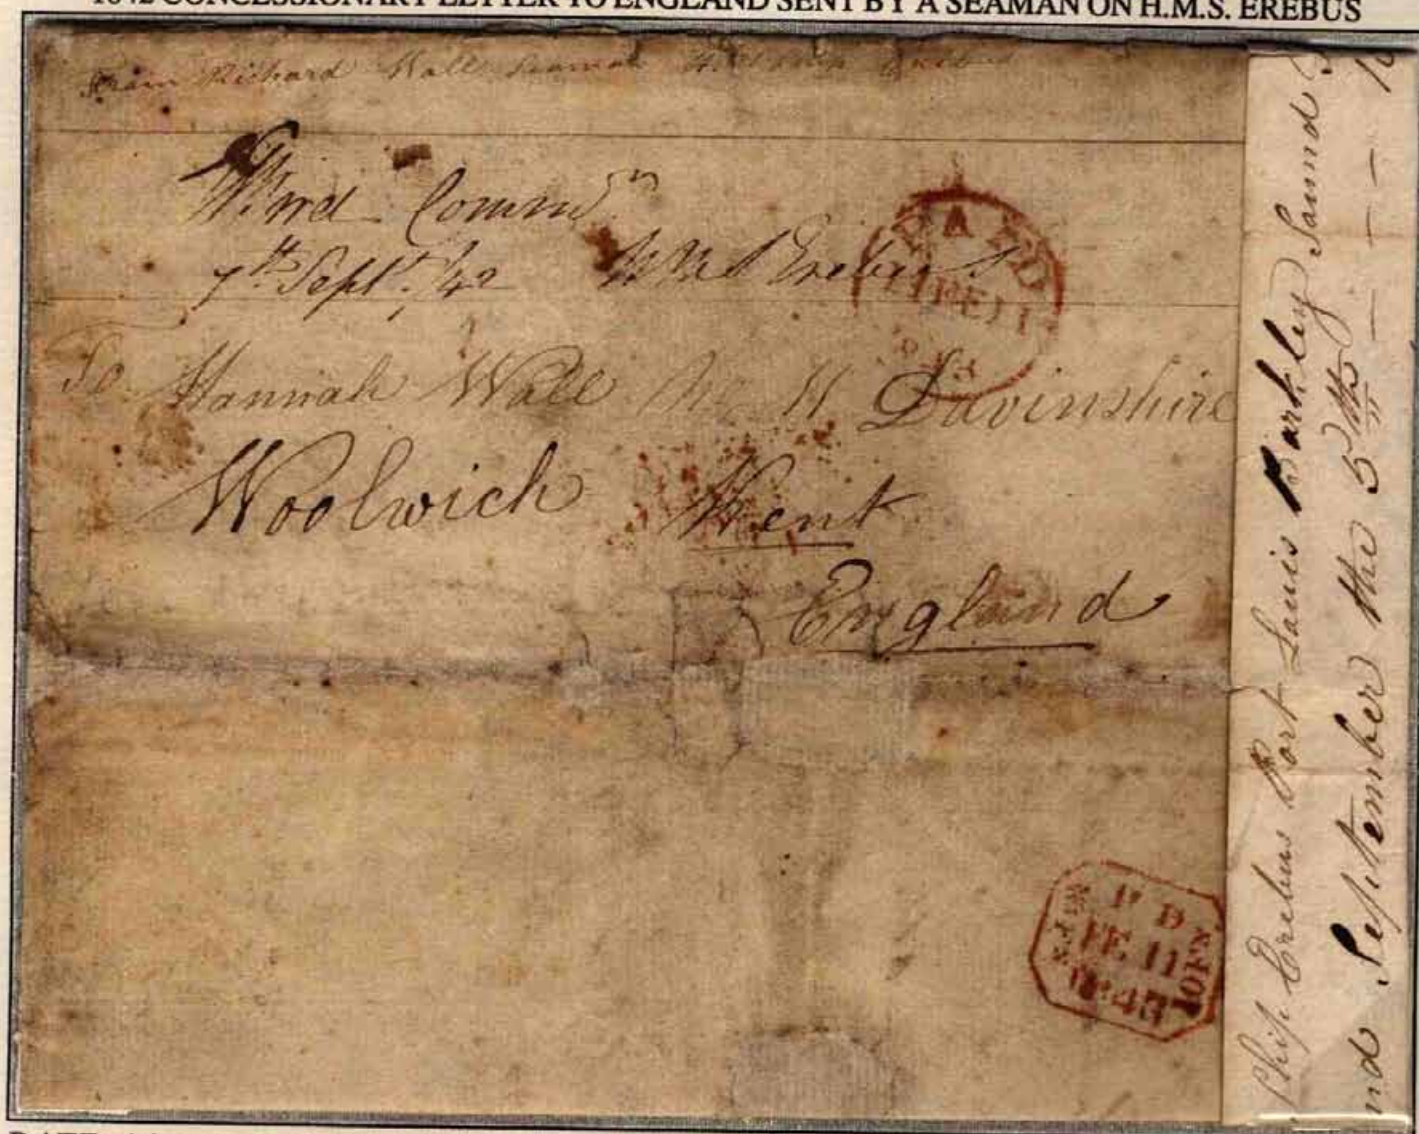 1842 CONCESSIONARY LETTER TO ENGLAND SENT BY A SEAMAN ON H.M.S. EREBUS
From Richard Wall Seaman Erebus
Comm
7th Sept. /42 HMS Erebus
To Hannah Wall Davinshire
Woolwich Kent
England
PAID
11 FE 11
1843
P D
FE 11
1843
Ship Erebus Port Louis Barkley Sound
nd September the 5th